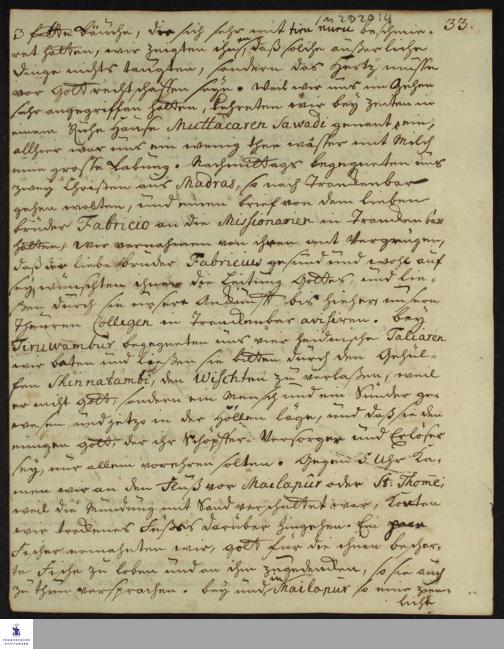 m 2020 19
33.
3 fette Bäuche, die sich sehr mit tiru nuru beschmie-
ret hatten, wir zeigten ihnen, daß solche äußerliche
Dinge nichts taugten, sondern das Hertz müsse
vor Gott rechtschaffen seyn. Weil wir uns im Gehen
sehr angegriffen hatten, kehreten wir bey zeiten in
einem Ruhe Hause Muttacaren Sawadi genant, ein,
allhier war uns ein wenig thee wasser mit Milch
eine grosse Labung. Nachmittags begegneten uns
zwey Christen aus Madras, so nach Trankenbar
gehen wolten, und einen brief von dem lieben
bruder Fabricio an die Missionarien in Trankenbar
hatten, wir vernahmen von ihnen mit Vergnügen,
daß der liebe bruder Fabricius gesund und wohl auf
sey, wünschten ihnen die Leitung Gottes, und lie-
ßen durch sie unsere Ankunfft bis hieher unsern
Theuren Collegen in Trankenbar avisiren. bey
Tiruwambur begegneten uns vier heidnische Taliaren
wir baten und ließen sie bitten durch den Gehül-
fen Shinnatambi, den Wischtnu zu verlaßen, weil
er nicht Gott, sondern ein Mensch und ein Sünder ge-
wesen und jetzo in der Höllen läge, und daß sie den
einigen Gott, der ihr Schöpffer Versorger und Erlöser
sey, nur allein verehren solten. Gegen 5 Uhr ka-
men wir an den Fluß vor Mailapur oder St. Thome,
weil die Mündung mit Sand verschüttet war, konten
wir trockenes Fußes darüber hingehen. Ein paar
Fischer ermahnten wir, Gott für die ihnen bescher-
te Fische zu loben und an ihn zu gedencken, so sie auch
zu thun versprachen. bey und in Mailapur so eine ziem-
liche
FRANCKESCHE
STIFTUNGEN